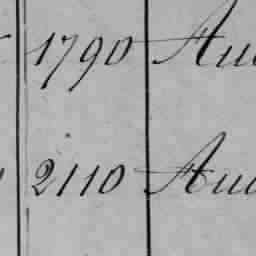 1790 Au
2110 Au